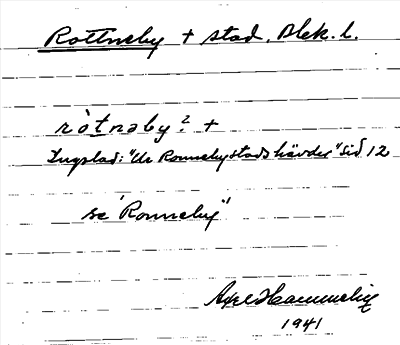 Rottneby + stad. Blek. l.
ròtnəby² +
Ingstad: "Ur Ronneby stads hävder" sid 12
se "Ronneby"
Axel
1941